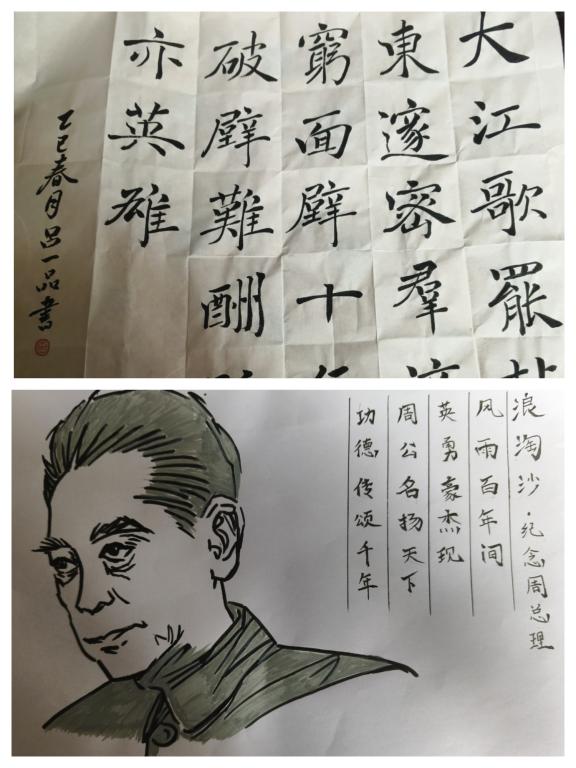 大江歌罷
東邃密羣
窮面壁十
破壁難酬
亦英雄
乙巳春月吕一品書
浪淘沙·纪念周总理
风雨百年间
英勇豪杰现
周公名扬天下
功德传颂千年